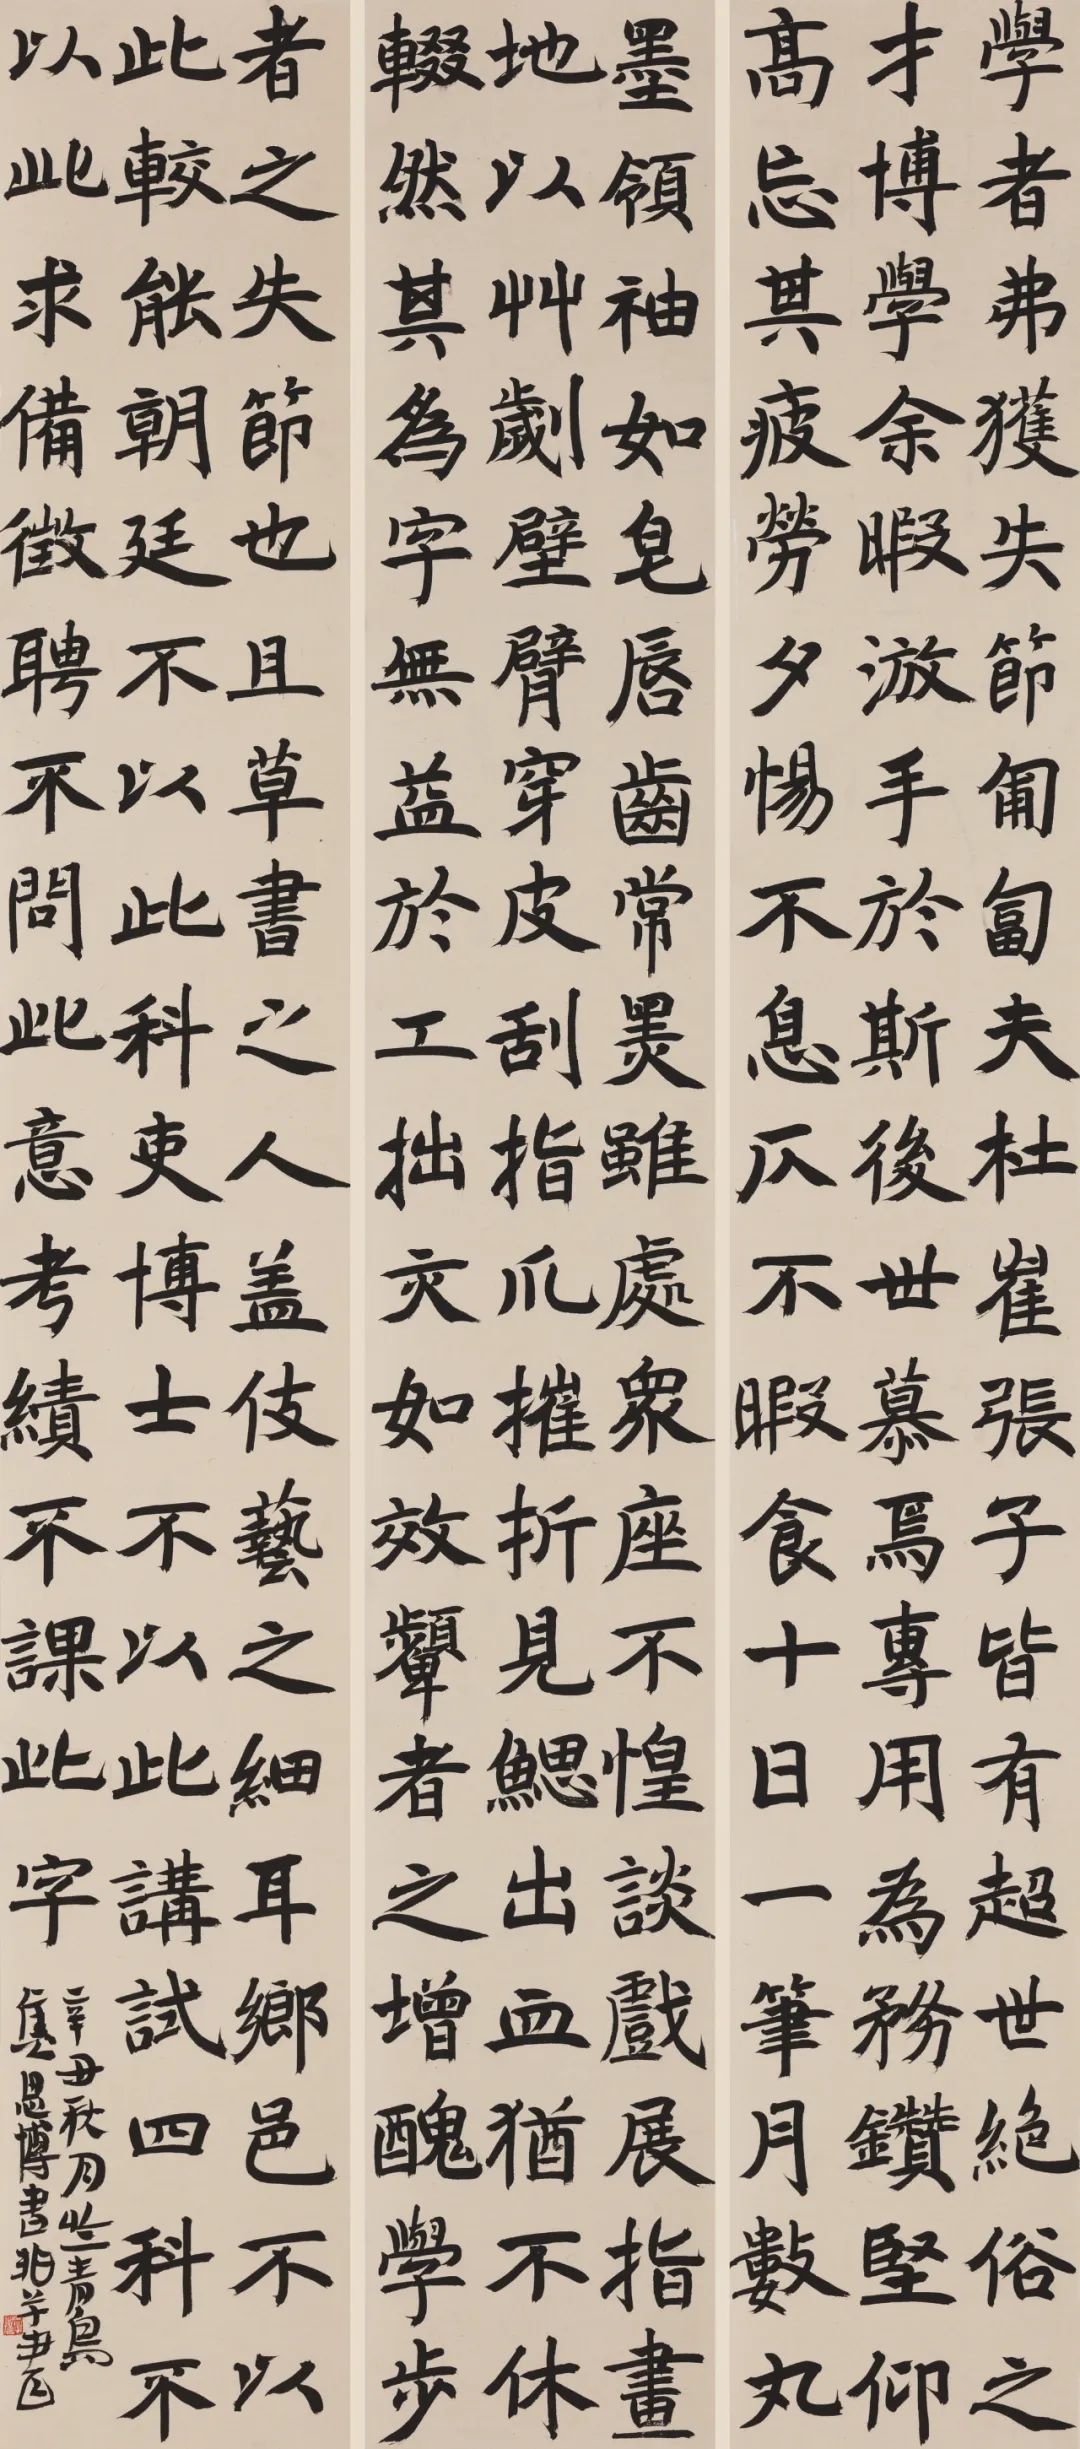 學者弗獲失節匍匐夫杜崔張子皆有超世絕俗之
才博學余暇游手於斯後世慕焉專用為務鑽堅仰
高忘其疲勞夕惕不息仄不暇食十日一筆月數丸
墨領袖如皂唇齒常黑雖處眾座不惶談戲展指畫
地以艸劌壁臂穿皮刮指爪摧折見鰓出血猶不休
輟然其為字無益於工拙亦如效顰者之增醜學步
者之失節也且草書之人盖伎藝之細耳鄉邑不以
此較能朝廷不以此科吏博士不以此講試四科不
以此求備徵聘不問此意考績不課此字
辛丑秋月青鳥
博書